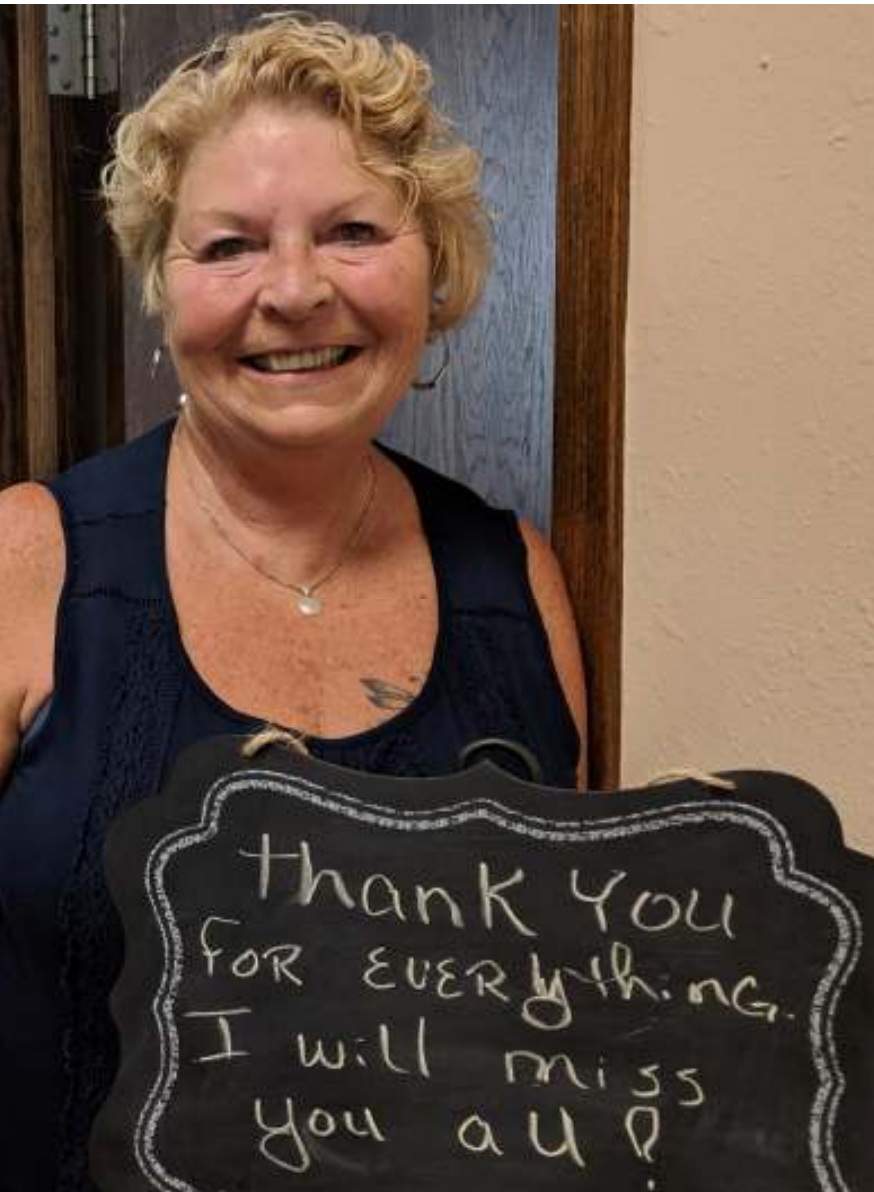 Thank You
FOR EVERything.
I will miss
you all!